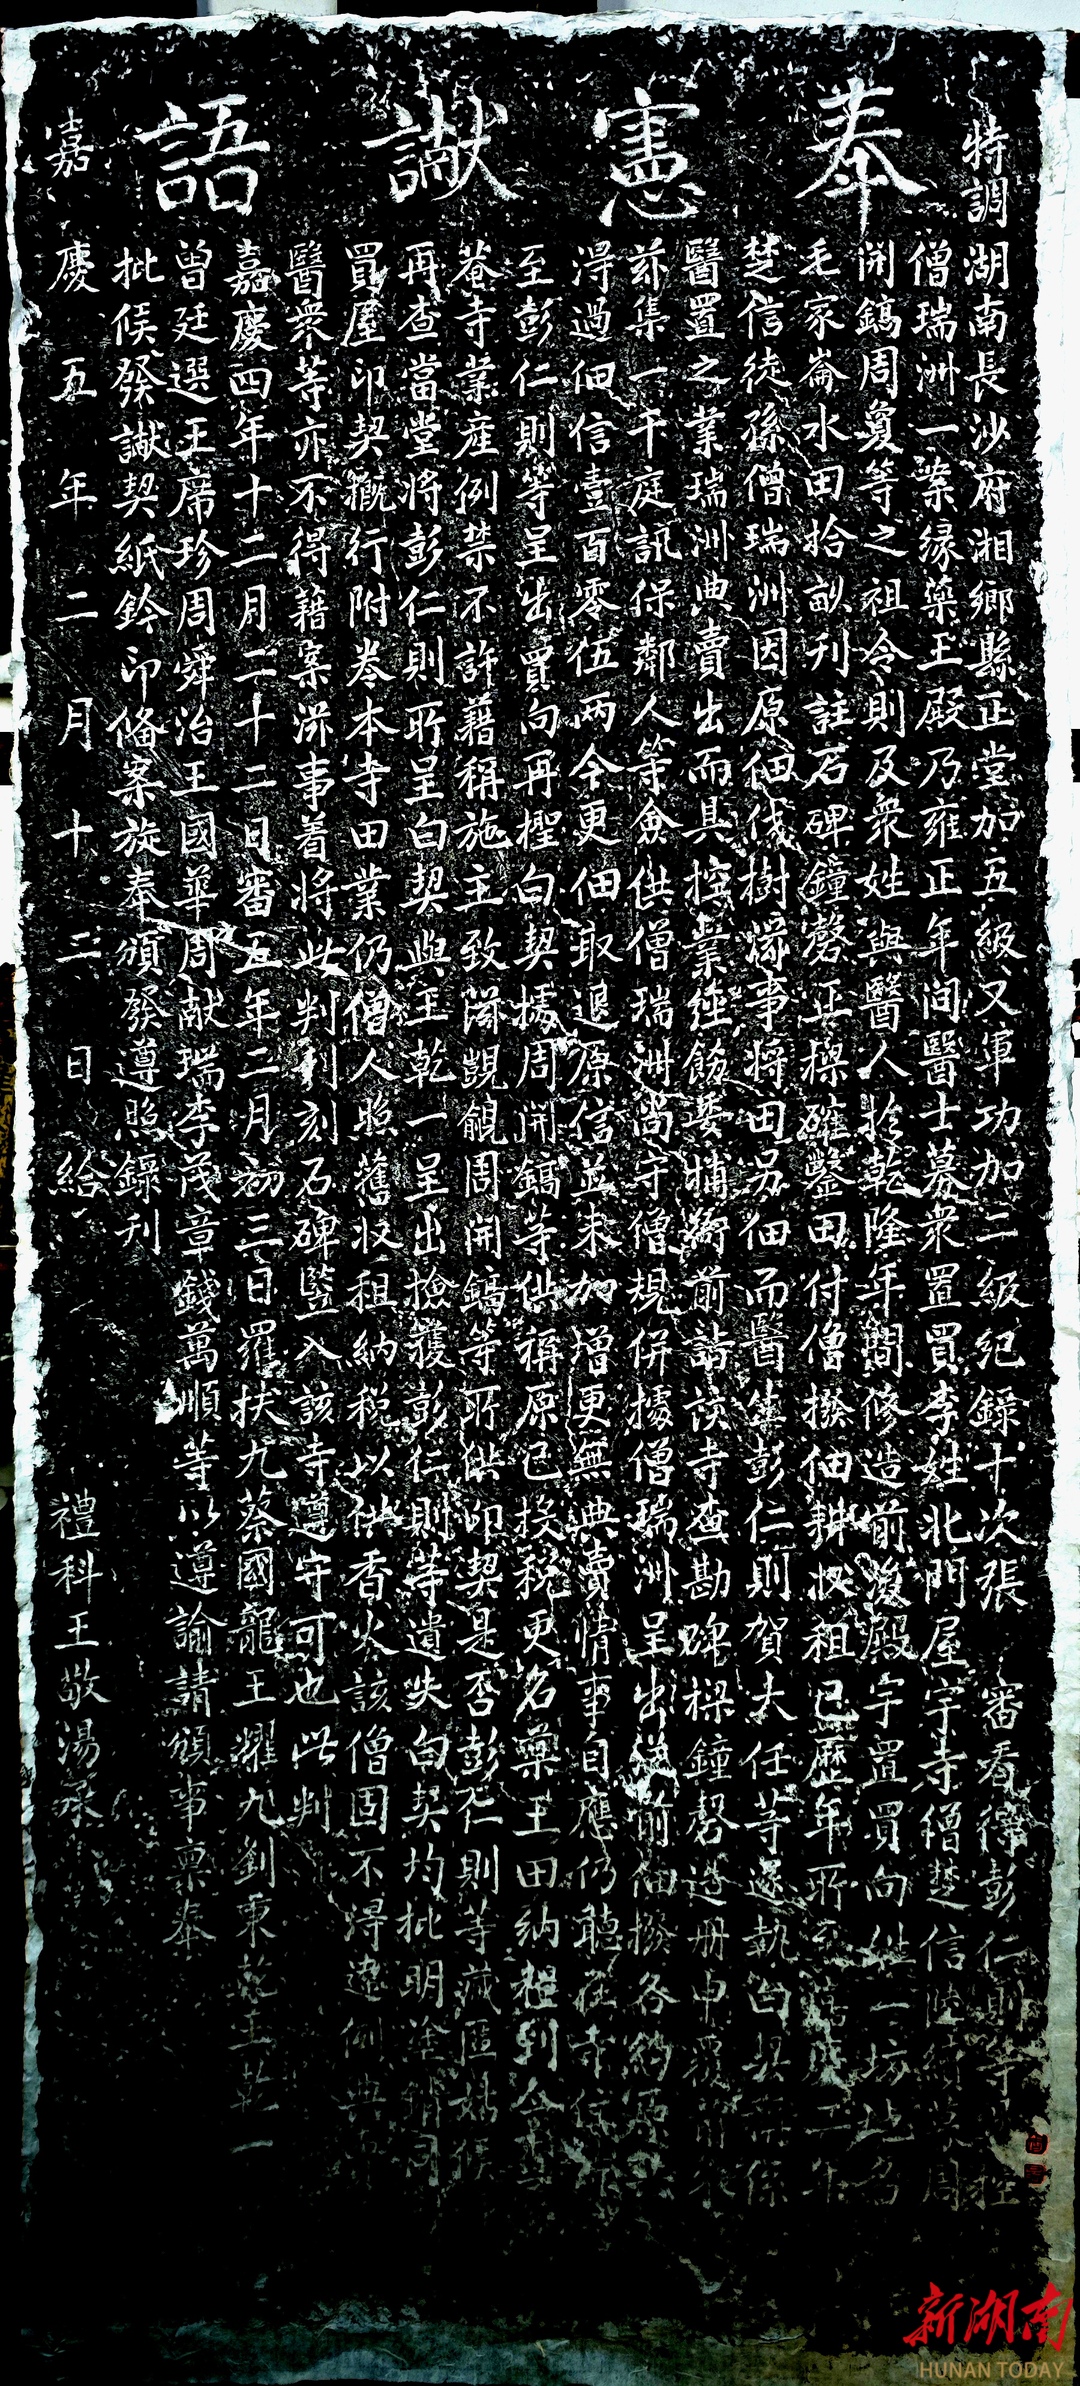 奉憲讞語
特調湖南長沙府湘鄉縣正堂加五級又軍功加二級紀錄十次張 審看得彭仁則等
僧瑞洲一案緣藥王殿乃雍正年间醫士募衆置買李姓北門屋宇寺僧楚信
開鎬周夐等之祖令則及衆姓與醫人於乾隆年間修造前後殿宇置買向姓一坊地名
毛家崙水田拾畝刊註石碑鐘磬正樑確鑿田付僧撥佃耕收租已歷年所
楚信徒孫僧瑞洲因原佃伐樹滋事将田另佃而醫生彭仁則賀大任等遂執白契
醫置之業瑞洲典賣出而具控業經飭委捕衙前詣該寺查勘碑樑鐘磬造册申覆前來
兹集一干庭訊保鄰人等僉供僧瑞洲尚守僧規併據僧瑞洲呈出前佃撥各約
淂過佃信壹百零伍两今更佃取退原信並未加增更無典賣情事自應仍聽
至彭仁則等呈出買向再擢白契據周開鎬等供稱原已投稅更名藥王田納糧到今
菴寺業產例禁不許藉稱施主致滋覬覦周開鎬等所供印契是否彭仁則等藏匿姑候
再查當堂将彭仁則所呈白契與王乾一呈出撿獲彭仁則等遺失白契均批明塗銷同
買屋印契槪行附卷本寺田業仍僧人照舊收租納稅以供香火該僧固不淂違例典
醫衆等亦不得藉案滋事着将此判刊刻石碑豎入該寺遵守可也此判
嘉慶四年十二月二十二日審五年二月初三日羅扶九蔡國龍王耀九劉秉 王乾一
曾廷選王席珍周舜治王國華周献瑞李茂章錢萬順等以遵諭請頒事禀奉
批候發讞契紙鈐印俻案旋奉頒發遵照錄刊
嘉慶五年二月十三日給 禮科王敬湯承
新湖南
HUNAN TODAY